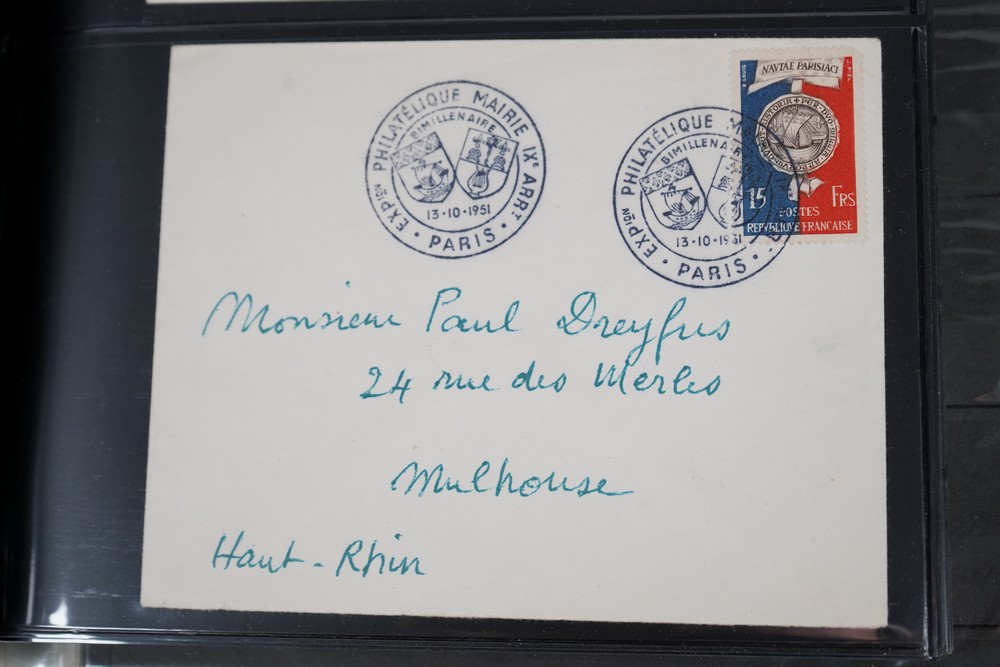 EXPION PHILATÉLIQUE MAIRIE IXE ARRT
BIMILLENAIRE
13-10-1951
PARIS
EXPION PHILATÉLIQUE
BIMILLENAIRE
13-10-1951
PARIS
NAVTAE PARISIACI
15 FRS
POSTES
REPVBLIQVE FRANCAISE
Monsieur Paul Dreyfus
24 rue des Merles
Mulhouse
Haut-Rhin